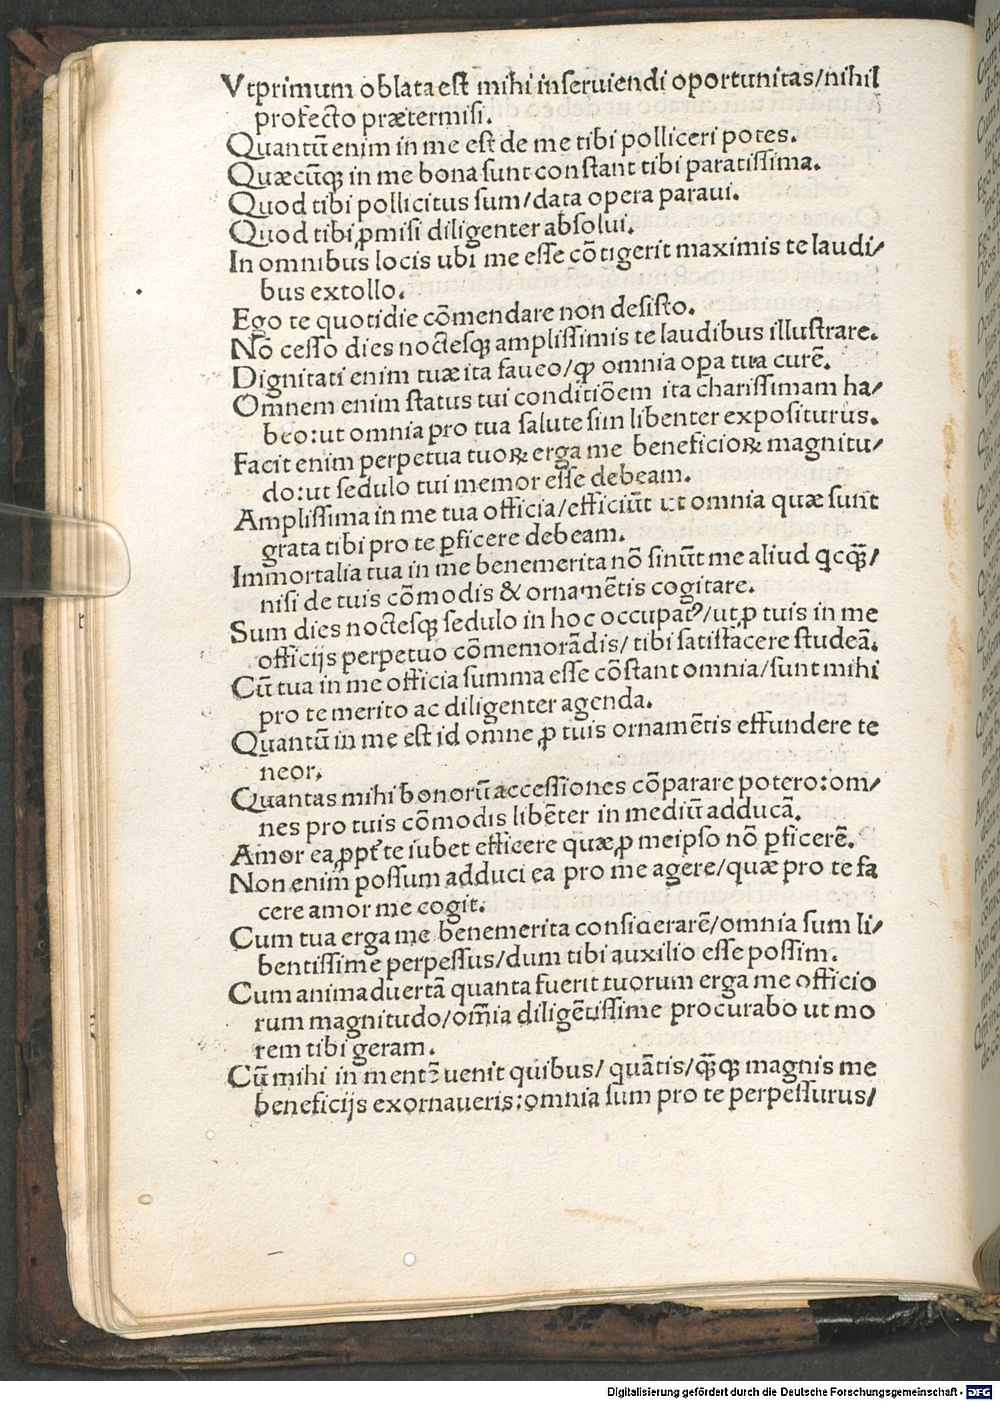 Vtprimum oblata est mihi inseruiendi oportunitas/nihil
profecto prætermisi.
Quantū enim in me est de me tibi polliceri potes.
Quæcūqꝫ in me bona sunt constant tibi paratissima.
Quod tibi pollicitus sum/data opera paraui.
Quod tibi ꝓmisi diligenter absolui.
In omnibus locis ubi me esse cōtigerit maximis te laudi/
bus extollo.
Ego te quotidie cōmendare non desisto.
Nō cesso dies noctesqꝫ amplissimis te laudibus illustrare.
Dignitati enim tuæ ita faueo/ꝙ omnia oꝑa tua curē.
Omnem enim status tui conditiōem ita charissimam ha/
beo:ut omnia pro tua salute sim libenter expositurus.
Facit enim perpetua tuoꝝ erga me beneficioꝝ magnitu/
do:ut sedulo tui memor esse debeam.
Amplissima in me tua officia/efficiūt ut omnia quæ sunt
grata tibi pro te ꝑficere debeam.
Immortalia tua in me benemerita nō sinūt me aliud qcꝙ̄/
nisi de tuis cōmodis & ornamētis cogitare.
Sum dies noctesqꝫ sedulo in hoc occupatꝰ/ut ꝓ tuis in me
officijs perpetuo cōmemorādis/tibi satisfacere studeā.
Cū tua in me officia summa esse cōstant omnia/sunt mihi
pro te merito ac diligenter agenda.
Quantū in me est id omne ꝓ tuis ornamētis effundere te
neor.
Quantas mihi bonorū accessiones cōparare potero:om/
nes pro tuis cōmodis libēter in mediū adducā.
Amor ea ꝓpt̄ te iubet efficere quæ ꝓ meipso nō ꝑficerē.
Non enim possum adduci ea pro me agere/quæ pro te fa
cere amor me cogit.
Cum tua erga me benemerita considerarē/omnia sum li/
bentissime perpessus/dum tibi auxilio esse possim.
Cum animaduertā quanta fuerit tuorum erga me officio
rum magnitudo/om̄ia diligētissime procurabo ut mo
rem tibi geram.
Cū mihi in mentē uenit quibus/quātis/qꝫ̄qꝫ magnis me
beneficijs exornaueris:omnia sum pro te perpessurus/
Digitalisierung gefördert durch die Deutsche Forschungsgemeinschaft - DFG